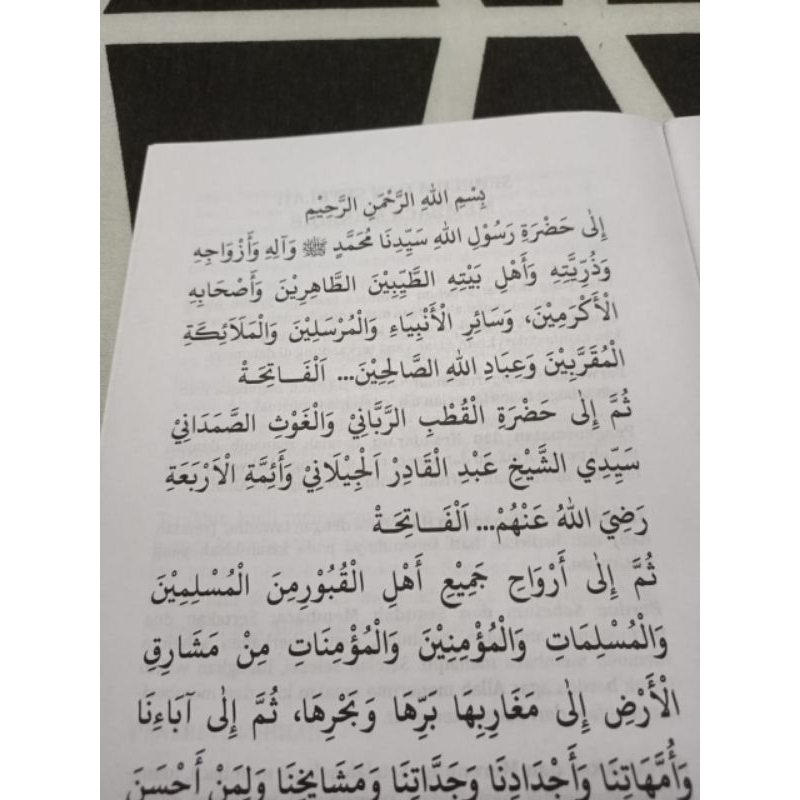 بِسْمِ اللهِ الرَّحْمَنِ الرَّحِيْمِ
إِلٰى حَضْرَةِ رَسُوْلِ اللهِ سَيِّدِنَا مُحَمَّدٍ ﷺ وَآلِهِ وَأَزْوَاجِهِ
وَذُرِّيَّتِهِ وَأَهْلِ بَيْتِهِ الطَّيِّبِيْنَ الطَّاهِرِيْنَ وَأَصْحَابِهِ
الْأَكْرَمِيْنَ، وَسَائِرِ الْأَنْبِيَاءِ وَالْمُرْسَلِيْنَ وَالْمَلَآئِكَةِ
الْمُقَرَّبِيْنَ وَعِبَادِ اللهِ الصَّالِحِيْنَ... اَلْفَـــاتِحَـةْ
ثُمَّ إِلٰى حَضْرَةِ الْقُطْبِ الرَّبَّانِيْ وَالْغَوْثِ الصَّمَدَانِيْ
سَيِّدِي الشَّيْخِ عَبْدِ الْقَادِرْ اَلْجِيْلَانِيْ وَأَئِمَّةِ الْاَرْبَعَةِ
رَضِيَ اللهُ عَنْهُمْ... اَلْفَـــاتِحَـةْ
ثُمَّ إِلٰى أَرْوَاحِ جَمِيْعِ أَهْلِ الْقُبُوْرِمِنَ الْمُسْلِمِيْنَ
وَالْمُسْلِمَاتِ وَالْمُؤْمِنِيْنَ وَالْمُؤْمِنَاتِ مِنْ مَشَارِقِ
الْأَرْضِ إِلٰى مَغَارِبِهَا بَرِّهَا وَبَحْرِهَا، ثُمَّ إِلٰى آبَاءِنَا
وَأُمَّهَاتِنَا وَأَجْدَادِنَا وَجَدَّاتِنَا وَمَشَايِخِنَا وَلِمَنْ أَحْسَنَ